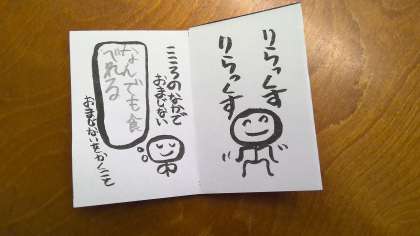 りらっくす
りらっくす
こころのなかで
おまじない
なんでも食
べれる
おまじないをかく